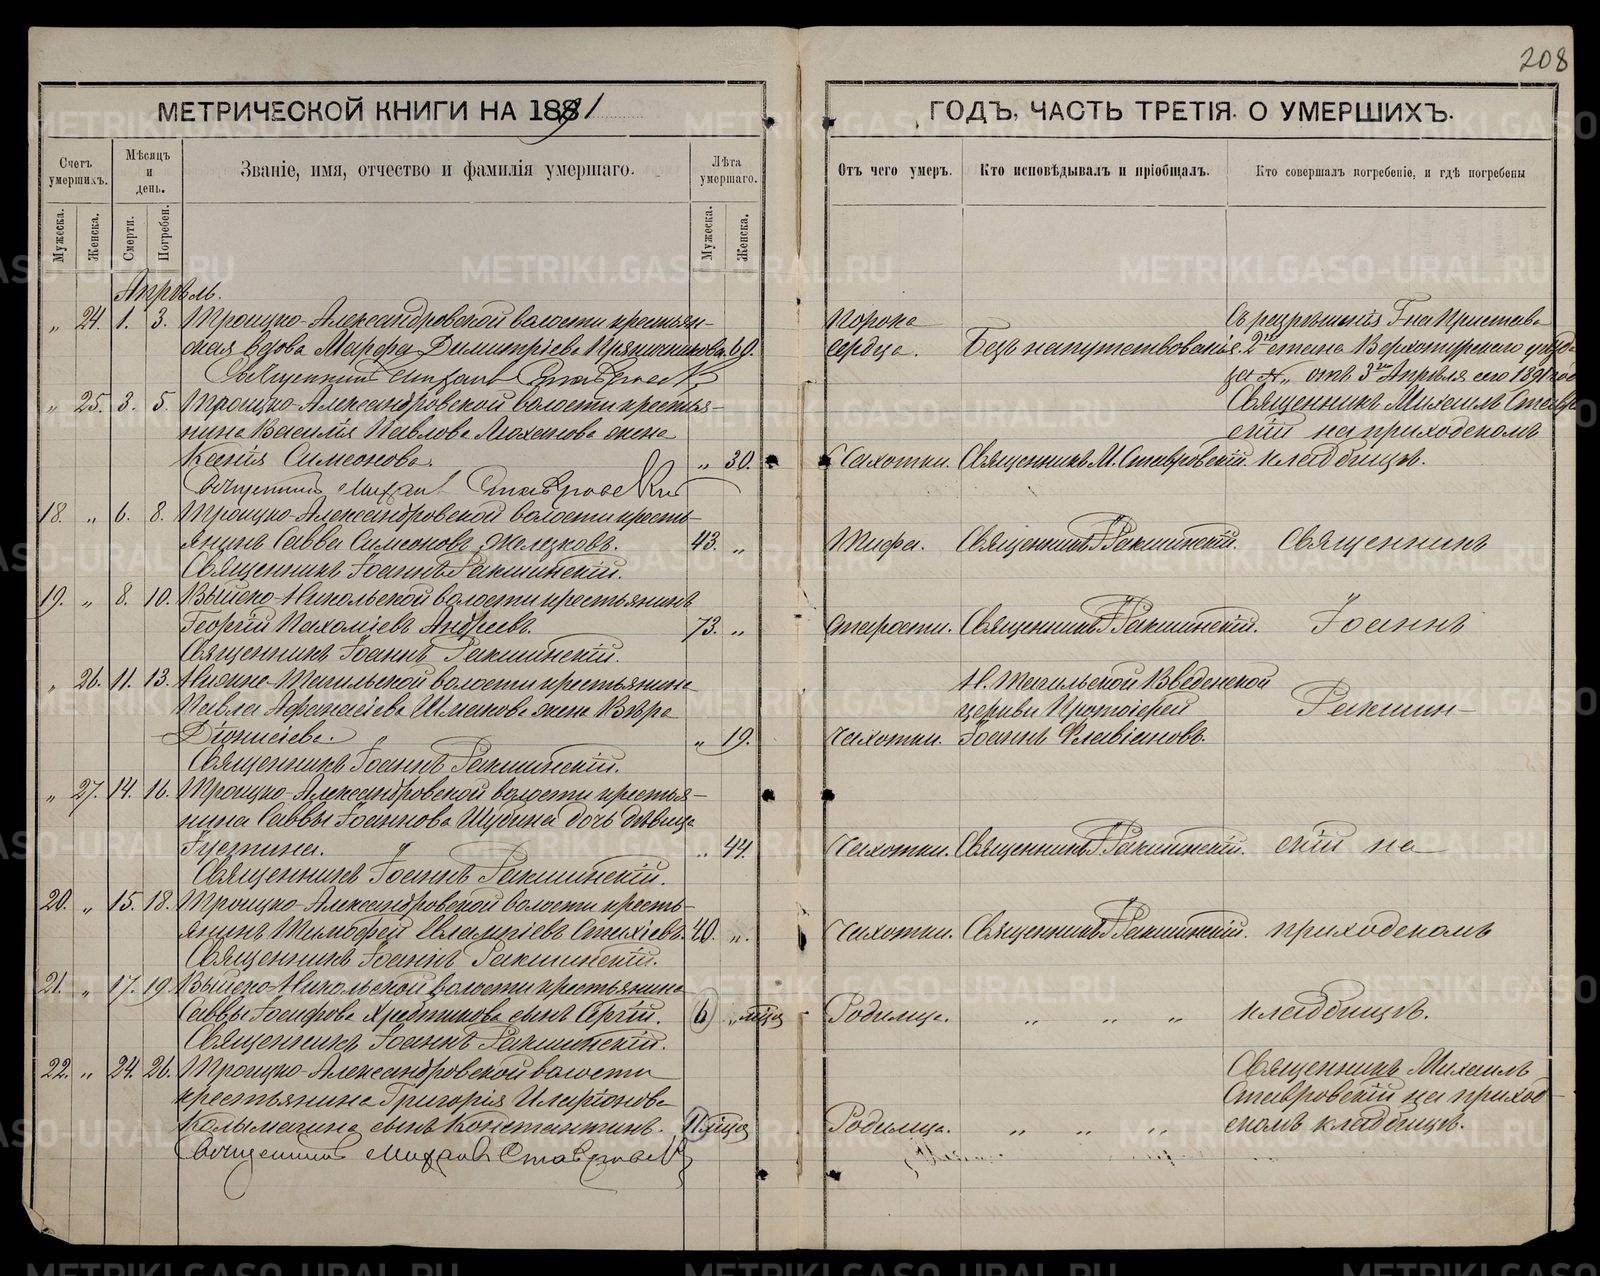 208
МЕТРИЧЕСКОЙ КНИГИ НА 1891
ГОДЪ, ЧАСТЬ ТРЕТІЯ. О УМЕРШИХЪ.
Счетъ умершихъ.
Мѣсяцъ и день.
Званіе, имя, отчество и фамилія умершаго.
Лѣта умершаго.
Отъ чего умеръ.
Кто исповѣдывалъ и пріобщалъ.
Кто совершалъ погребеніе, и гдѣ погребены
Мужеска.
Женска.
Смерти.
Погребен.
Мужеска.
Женска.
Апрѣль.
„ 24. 1. 3. Троицко-Александровской волости крестьян-
ская вдова Марфа Димитріева Пряничникова. 69.
Порока
сердца. Безъ напутствованія.
Священникъ Михаилъ Ставровскій
Съ разрѣшенія Г-на Пристава
2го стана Верхотурскаго уѣзда
за № „ отъ 3го Апрѣля сего 1891 год
Священникъ Михаилъ Ставров
скій на приходскомъ
кладбищѣ.
„ 25. 3. 5. Троицко-Александровской волости крестья-
нина Василія Павлова Мохова жена
Ксенія Симеонова. „ 30. Чахотки. Священникъ М. Ставровскій.
Священникъ Михаилъ Ставровскій
18. „ 6. 8. Троицко-Александровской волости кресть-
янинъ Савва Симеоновъ Желѣзковъ. 43. „ Тифа. Священникъ І. Ракшинскій. Священникъ
Священникъ Іоаннъ Ракшинскій.
19. „ 8. 10. Выйско-Никольской волости крестьянинъ
Георгій Пахоміевъ Андреевъ. 73. „ Старости. Священникъ І. Ракшинскій. Іоаннъ
Священникъ Іоаннъ Ракшинскій.
„ 26. 11. 13. Нижне-Тагильской волости крестьянина
Павла Аѳанасіева Шмакова жена Вѣра
Діонисіева. „ 19. Чахотки.
Н. Тагильской Введенской
церкви Протоіерей
Іоаннъ Флавіановъ.
Ракшин-
Священникъ Іоаннъ Ракшинскій.
„ 27. 14. 16. Троицко-Александровской волости крестья-
нина Саввы Іоаннова Шубина дочь дѣвица
Іустина. „ 44. Чахотки. Священникъ І. Ракшинскій. скій на
Священникъ Іоаннъ Ракшинскій.
20. „ 15. 18. Троицко-Александровской волости кресть-
янинъ Тимофей Евлампіевъ Стахіевъ. 40. „. Чахотки. Священникъ І. Ракшинскій. приходскомъ
Священникъ Іоаннъ Ракшинскій.
21. „ 17. 19. Выйско-Никольской волости крестьянина
Саввы Іосифова Хребтикова сынъ Сергій. 6 „ мѣся Родимца. „ „ „ кладбищѣ.
Священникъ Іоаннъ Ракшинскій.
22. „ 24. 26. Троицко-Александровской волости
крестьянина Григорія Иларіонова
Колымагина сынъ Константинъ. 11 мѣся Родимца. „ „ „
Священникъ Михаилъ
Ставровскій на приход-
скомъ кладбищѣ.
Священникъ Михаилъ Ставровскій
METRIKI.GASO-URAL.RU